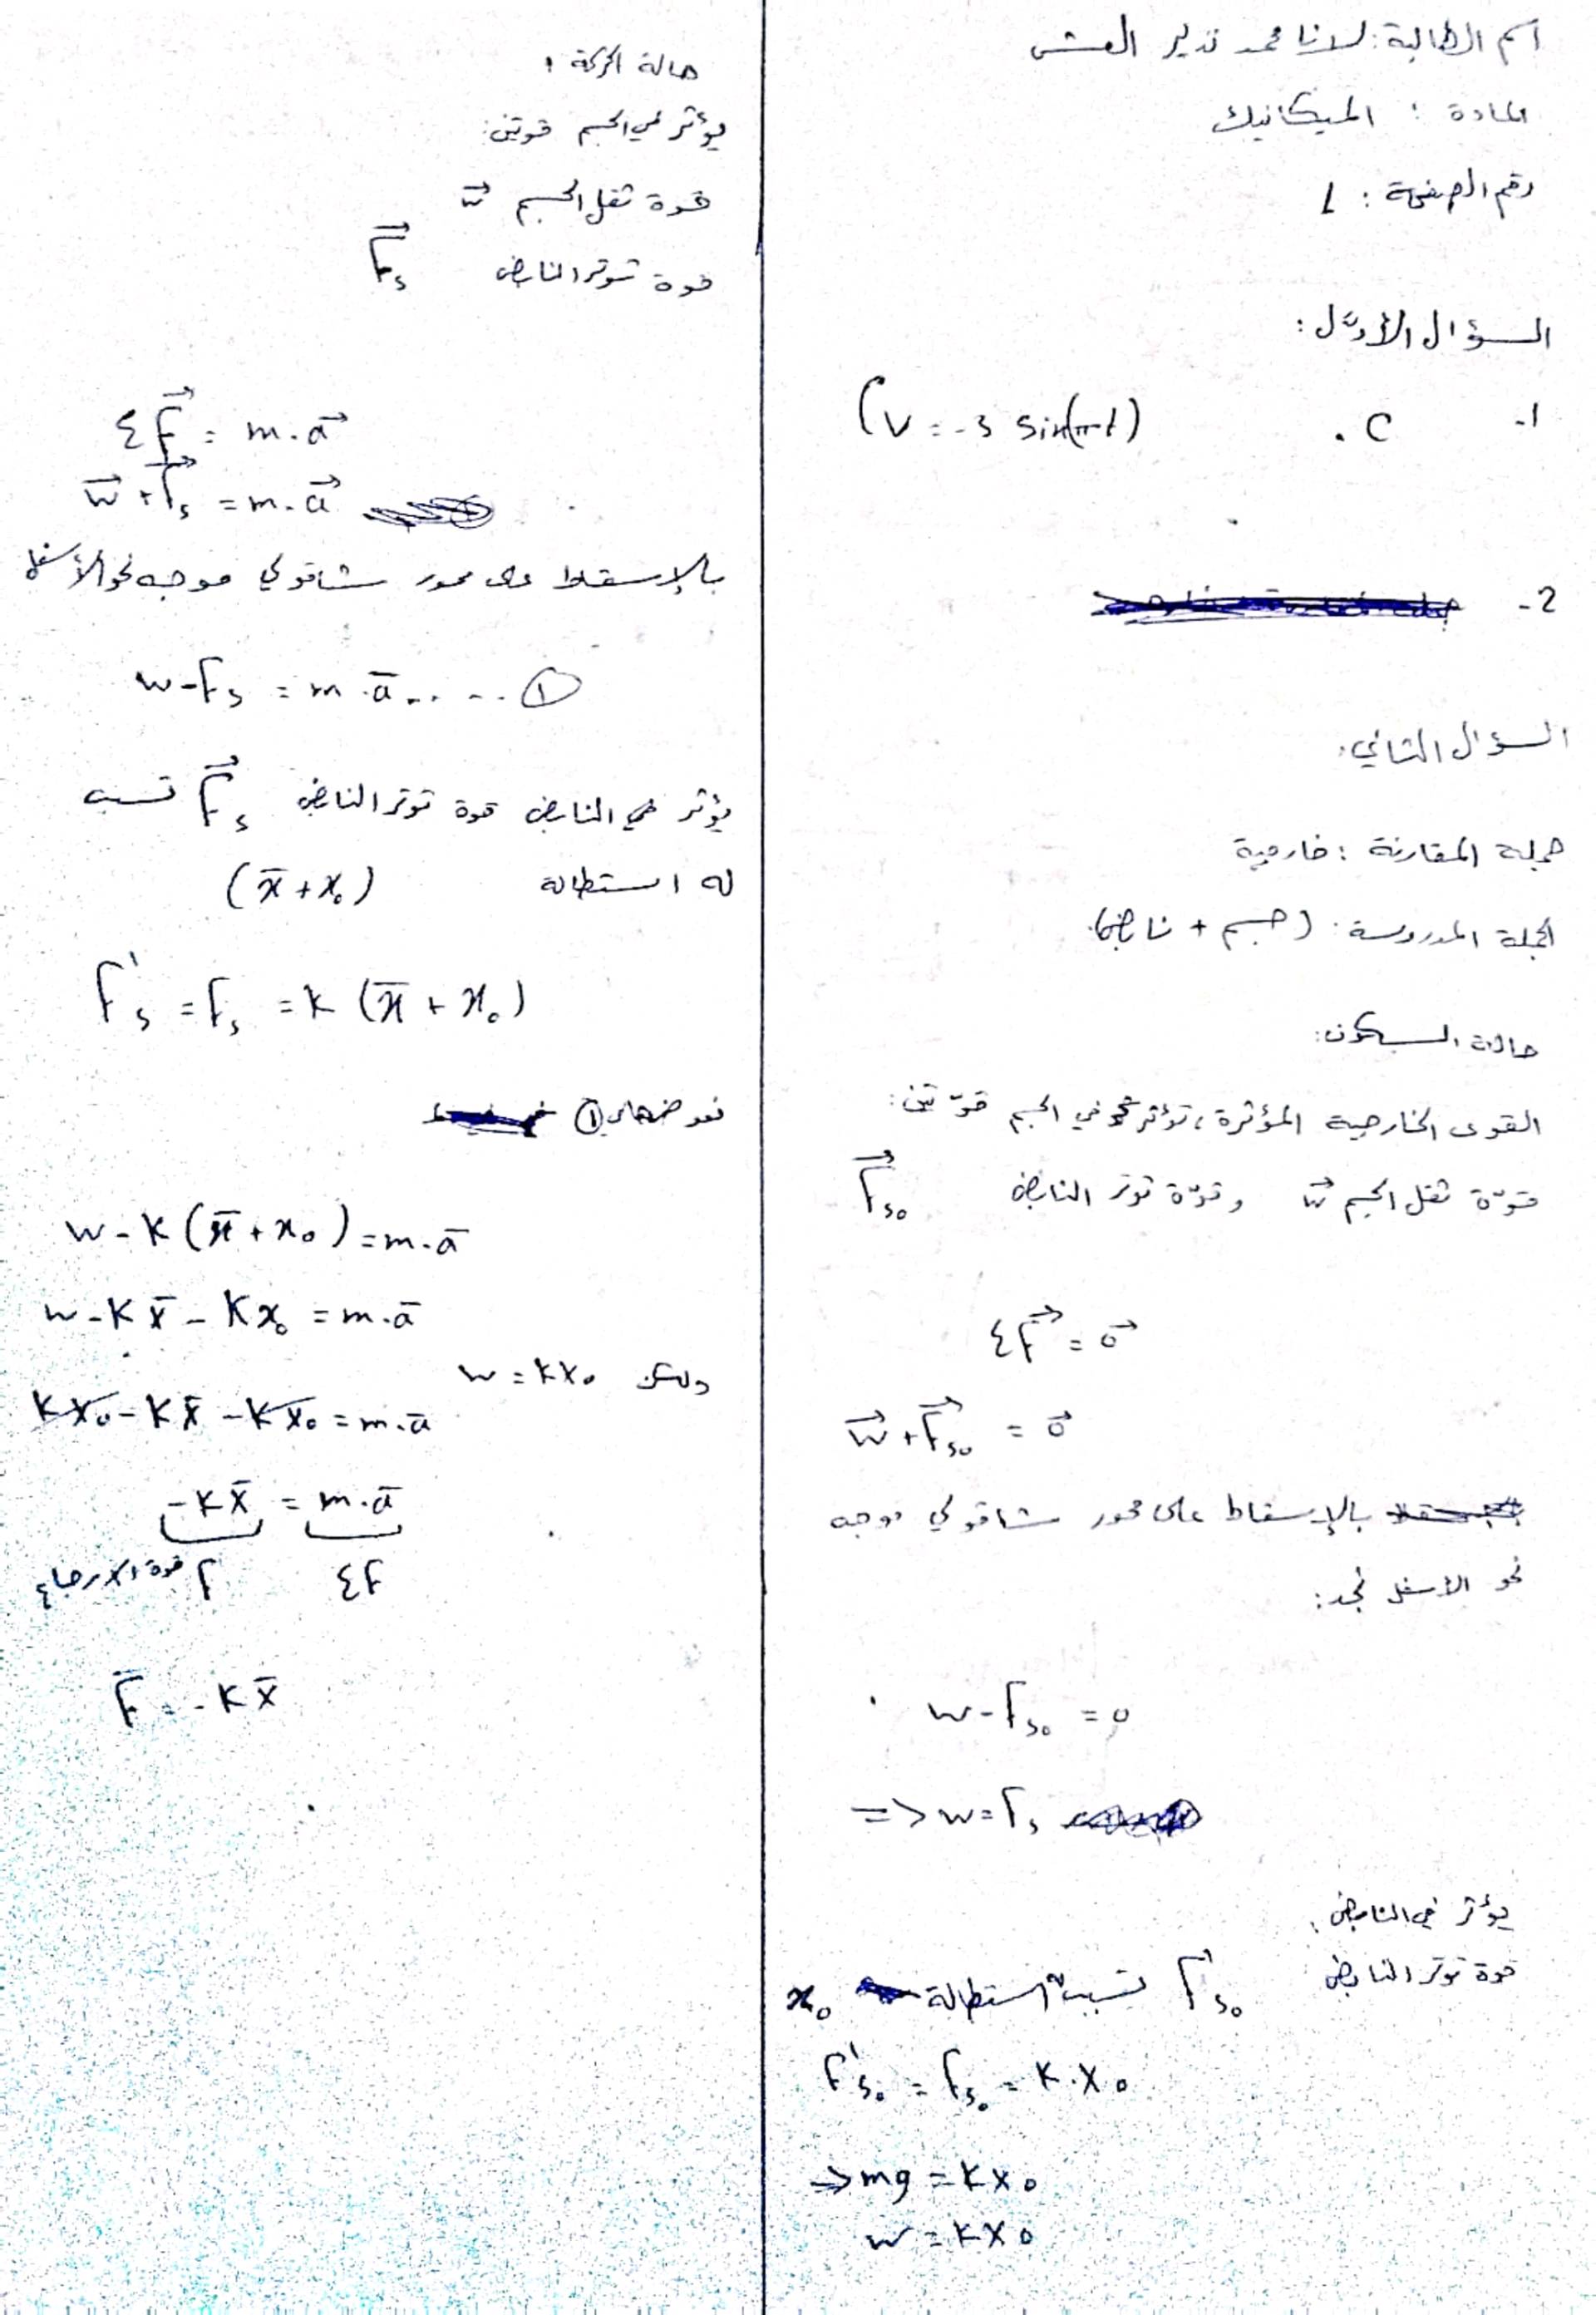 اسم الطالبة: لانا محمد نذير العش
المادة : الميكانيك
رقم الصفحة : 1
السؤال الأوّل :
1- C . (v = -3 sin(πt)
2-
السؤال الثاني:
جملة المقارنة : خارجية
الجملة المدروسة: (جسم + نابض).
حالة السكون:
القوى الخارجية المؤثرة، تؤثر في الجسم قوّتين :
قوّة ثقل الجسم w⃗ وقوّة توتر النابض F⃗s₀
ΣF⃗ = 0⃗
w⃗ + F⃗s₀ = 0⃗
بالإسقاط على محور شاقولي موجه
نحو الأسفل نجد :
w - Fs₀ = 0
=> w = Fs
يؤثر في النابض :
قوة توتر النابض F's₀ تسبب له استطالة x₀
F's₀ = Fs₀ = K . x₀
=> mg = Kx₀
w = Kx₀
حالة الحركة :
يؤثر في الجسم قوتين:
قوة ثقل الجسم w⃗
قوة توتر النابض F⃗s
ΣF⃗ = m . a⃗
w⃗ + F⃗s = m . a⃗
بالإسقاط على محور شاقولي موجه نحو الأسفل
w - Fs = m . a̅ .. - .. ①
يؤثر في النابض قوة توتر النابض F⃗s تسبب
له استطالة (x̅ + x₀)
F's = Fs = K (x̅ + x₀)
نعوضها في ①
w - K (x̅ + x₀) = m . a̅
w - K x̅ - K x₀ = m . a̅
ولكن w = Kx₀
Kx₀ - K x̅ - Kx₀ = m . a̅
-K x̅ = m . a̅
قوة الارجاع F ΣF
F̅ = - K x̅